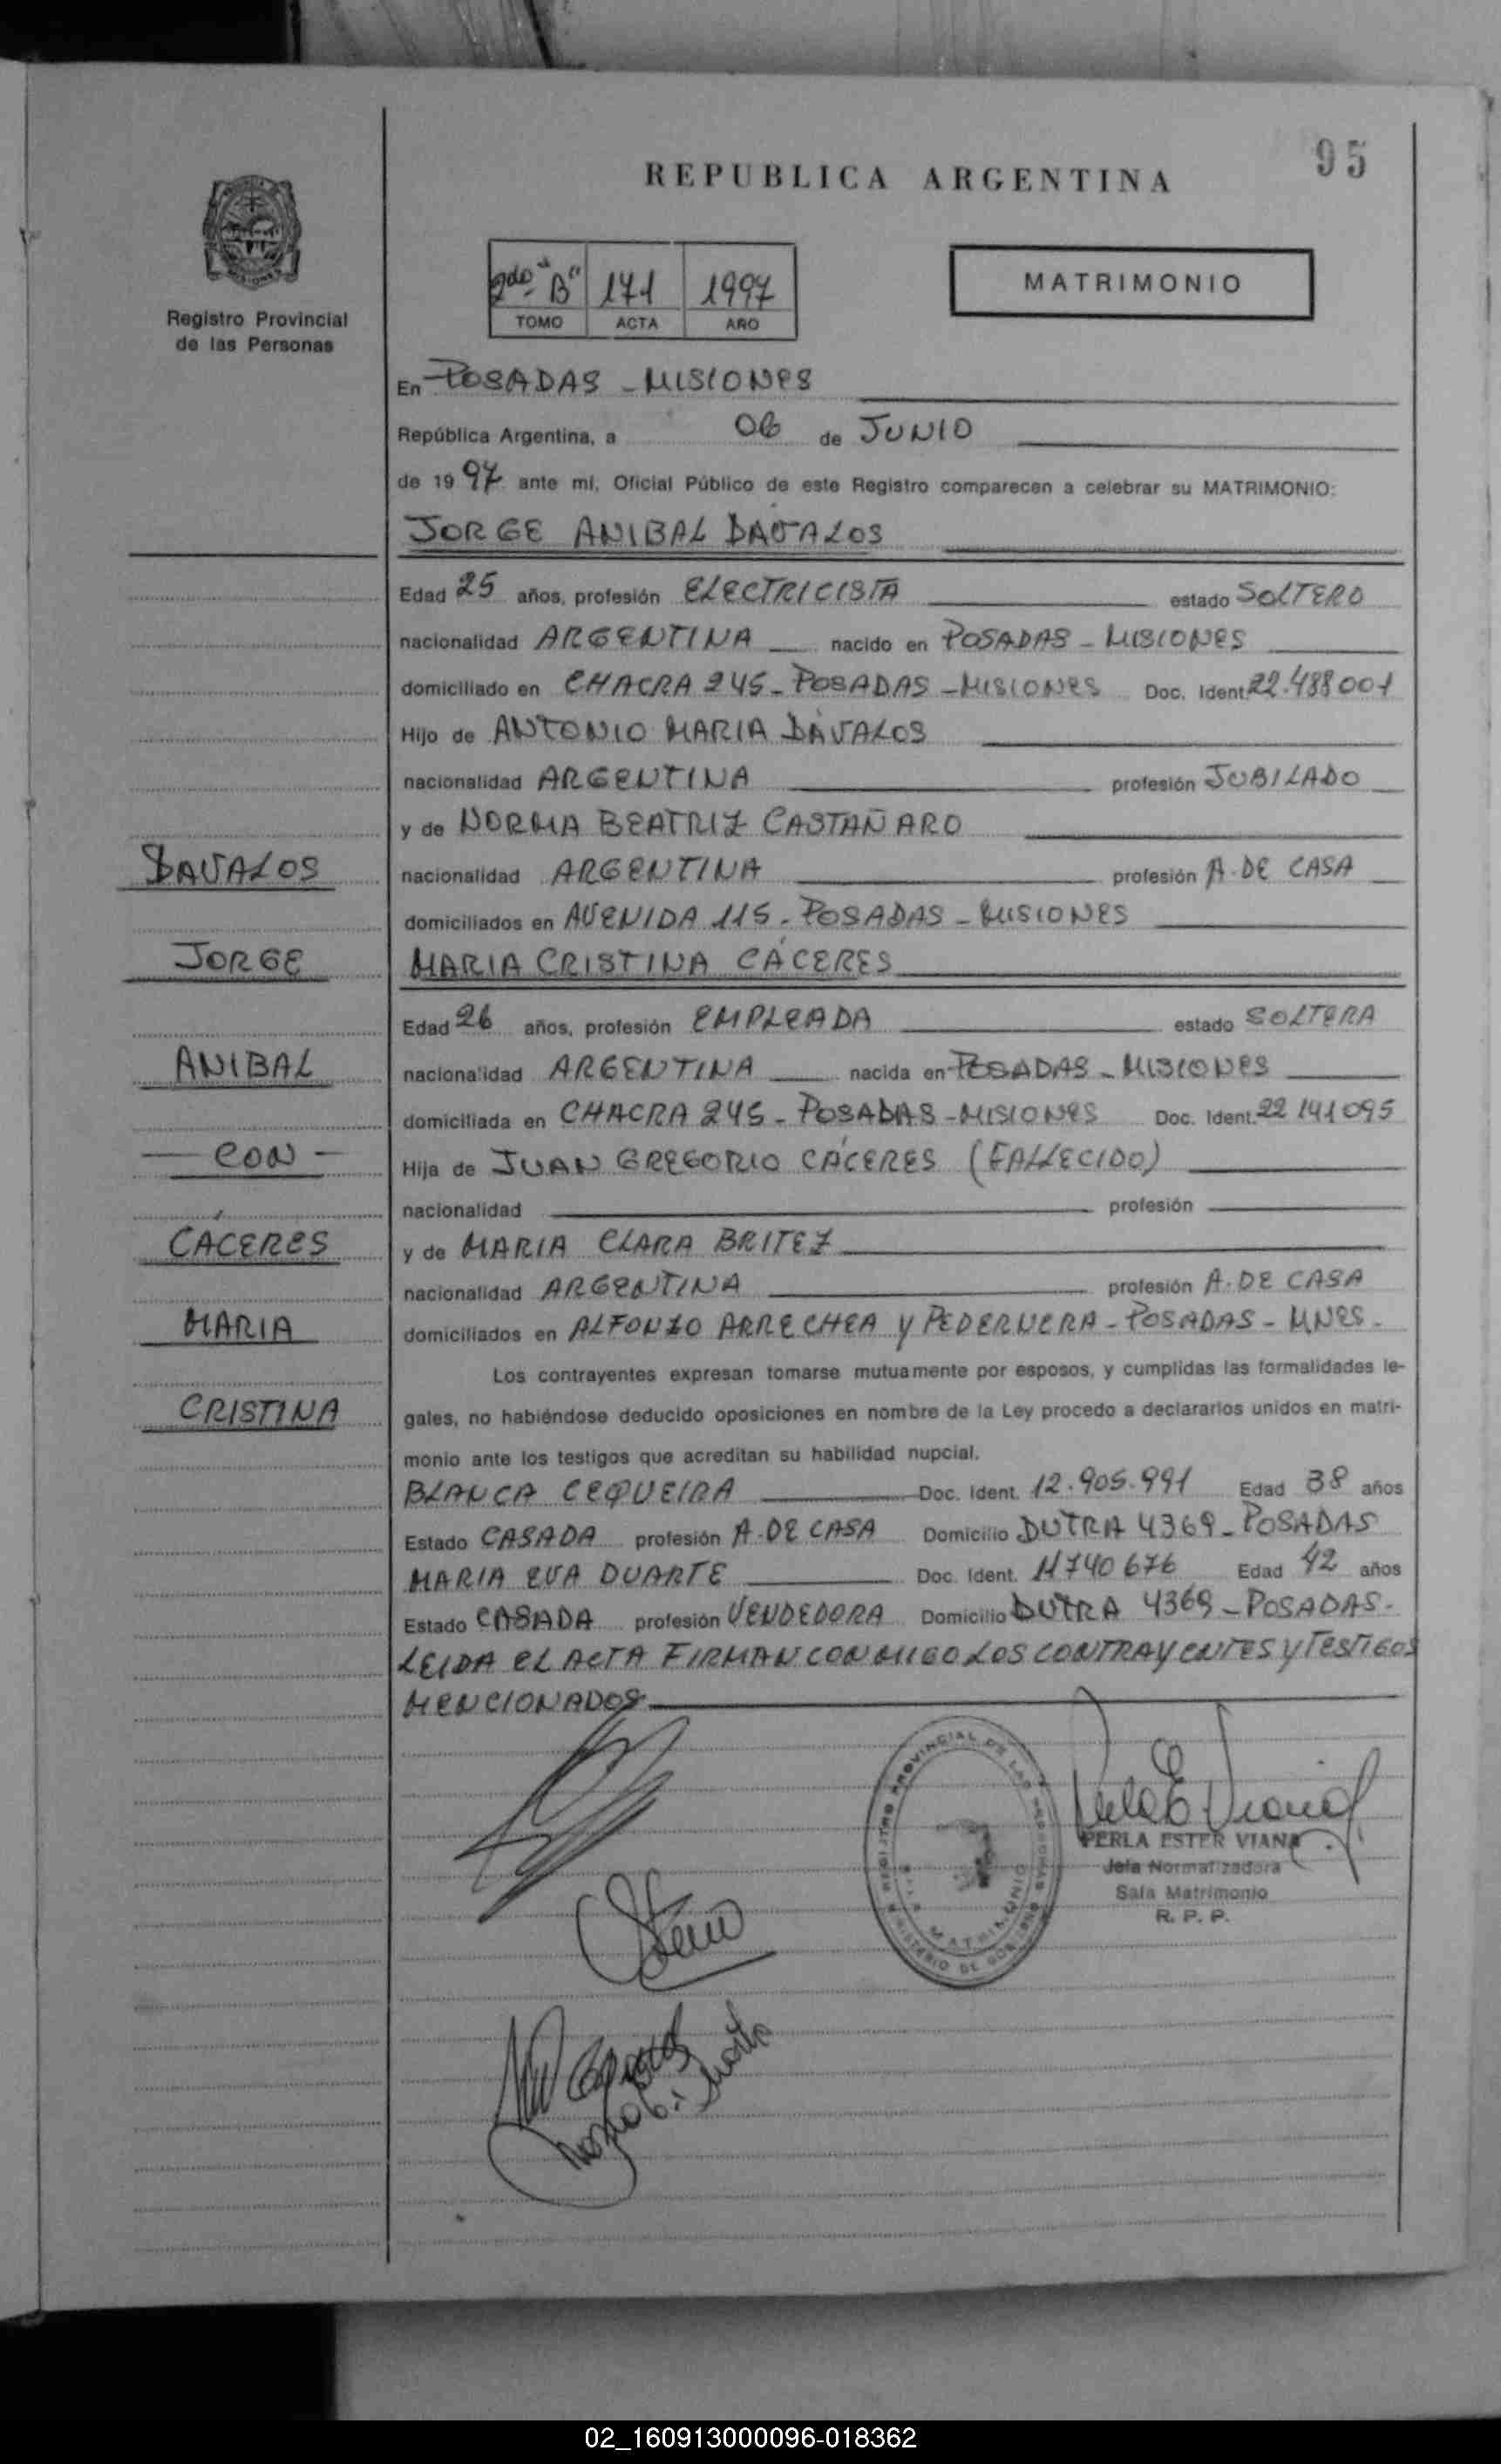 95
REPUBLICA ARGENTINA
2do "B" 171 1997
TOMO ACTA AÑO
MATRIMONIO
Registro Provincial
de las Personas
En POSADAS - MISIONES
República Argentina, a 06 de JUNIO
de 1997 ante mí, Oficial Público de este Registro comparecen a celebrar su MATRIMONIO:
JORGE ANIBAL DAVALOS
Edad 25 años, profesión ELECTRICISTA estado SOLTERO
nacionalidad ARGENTINA nacido en POSADAS - MISIONES
domiciliado en CHACRA 245 - POSADAS - MISIONES Doc. Ident. 22.488001
Hijo de ANTONIO MARIA DÁVALOS
nacionalidad ARGENTINA profesión JUBILADO
y de NORMA BEATRIZ CASTAÑARO
DAVALOS
nacionalidad ARGENTINA profesión A. DE CASA
domiciliados en AVENIDA 115 - POSADAS - MISIONES
JORGE
MARIA CRISTINA CÁCERES
Edad 26 años, profesión EMPLEADA estado SOLTERA
ANIBAL
nacionalidad ARGENTINA nacida en POSADAS - MISIONES
domiciliada en CHACRA 245 - POSADAS - MISIONES Doc. Ident. 22 141 095
- CON -
Hija de JUAN GREGORIO CÁCERES (FALLECIDO)
nacionalidad profesión
CÁCERES
y de MARIA CLARA BRITEZ
nacionalidad ARGENTINA profesión A. DE CASA
MARIA
domiciliados en ALFONZO ARRECHEA Y PEDERNERA - POSADAS - MNES.
Los contrayentes expresan tomarse mutuamente por esposos, y cumplidas las formalidades le-
CRISTINA
gales, no habiéndose deducido oposiciones en nombre de la Ley procedo a declararlos unidos en matri-
monio ante los testigos que acreditan su habilidad nupcial.
BLANCA CEQUEIRA Doc. Ident. 12.905.991 Edad 38 años
Estado CASADA profesión A. DE CASA Domicilio DUTRA 4369 - POSADAS
MARIA EVA DUARTE Doc. Ident. 11740676 Edad 42 años
Estado CASADA profesión VENDEDORA Domicilio DUTRA 4369 - POSADAS -
LEIDA EL ACTA FIRMAN CONMIGO LOS CONTRAYENTES Y TESTIGOS
MENCIONADOS
REGISTRO PROVINCIAL DE LAS PERSONAS
MATRIMONIO
MINISTERIO DE GOBIERNO
PERLA ESTER VIANA
Jefa Normatizadora
Sala Matrimonio
R. P. P.
02_160913000096-018362